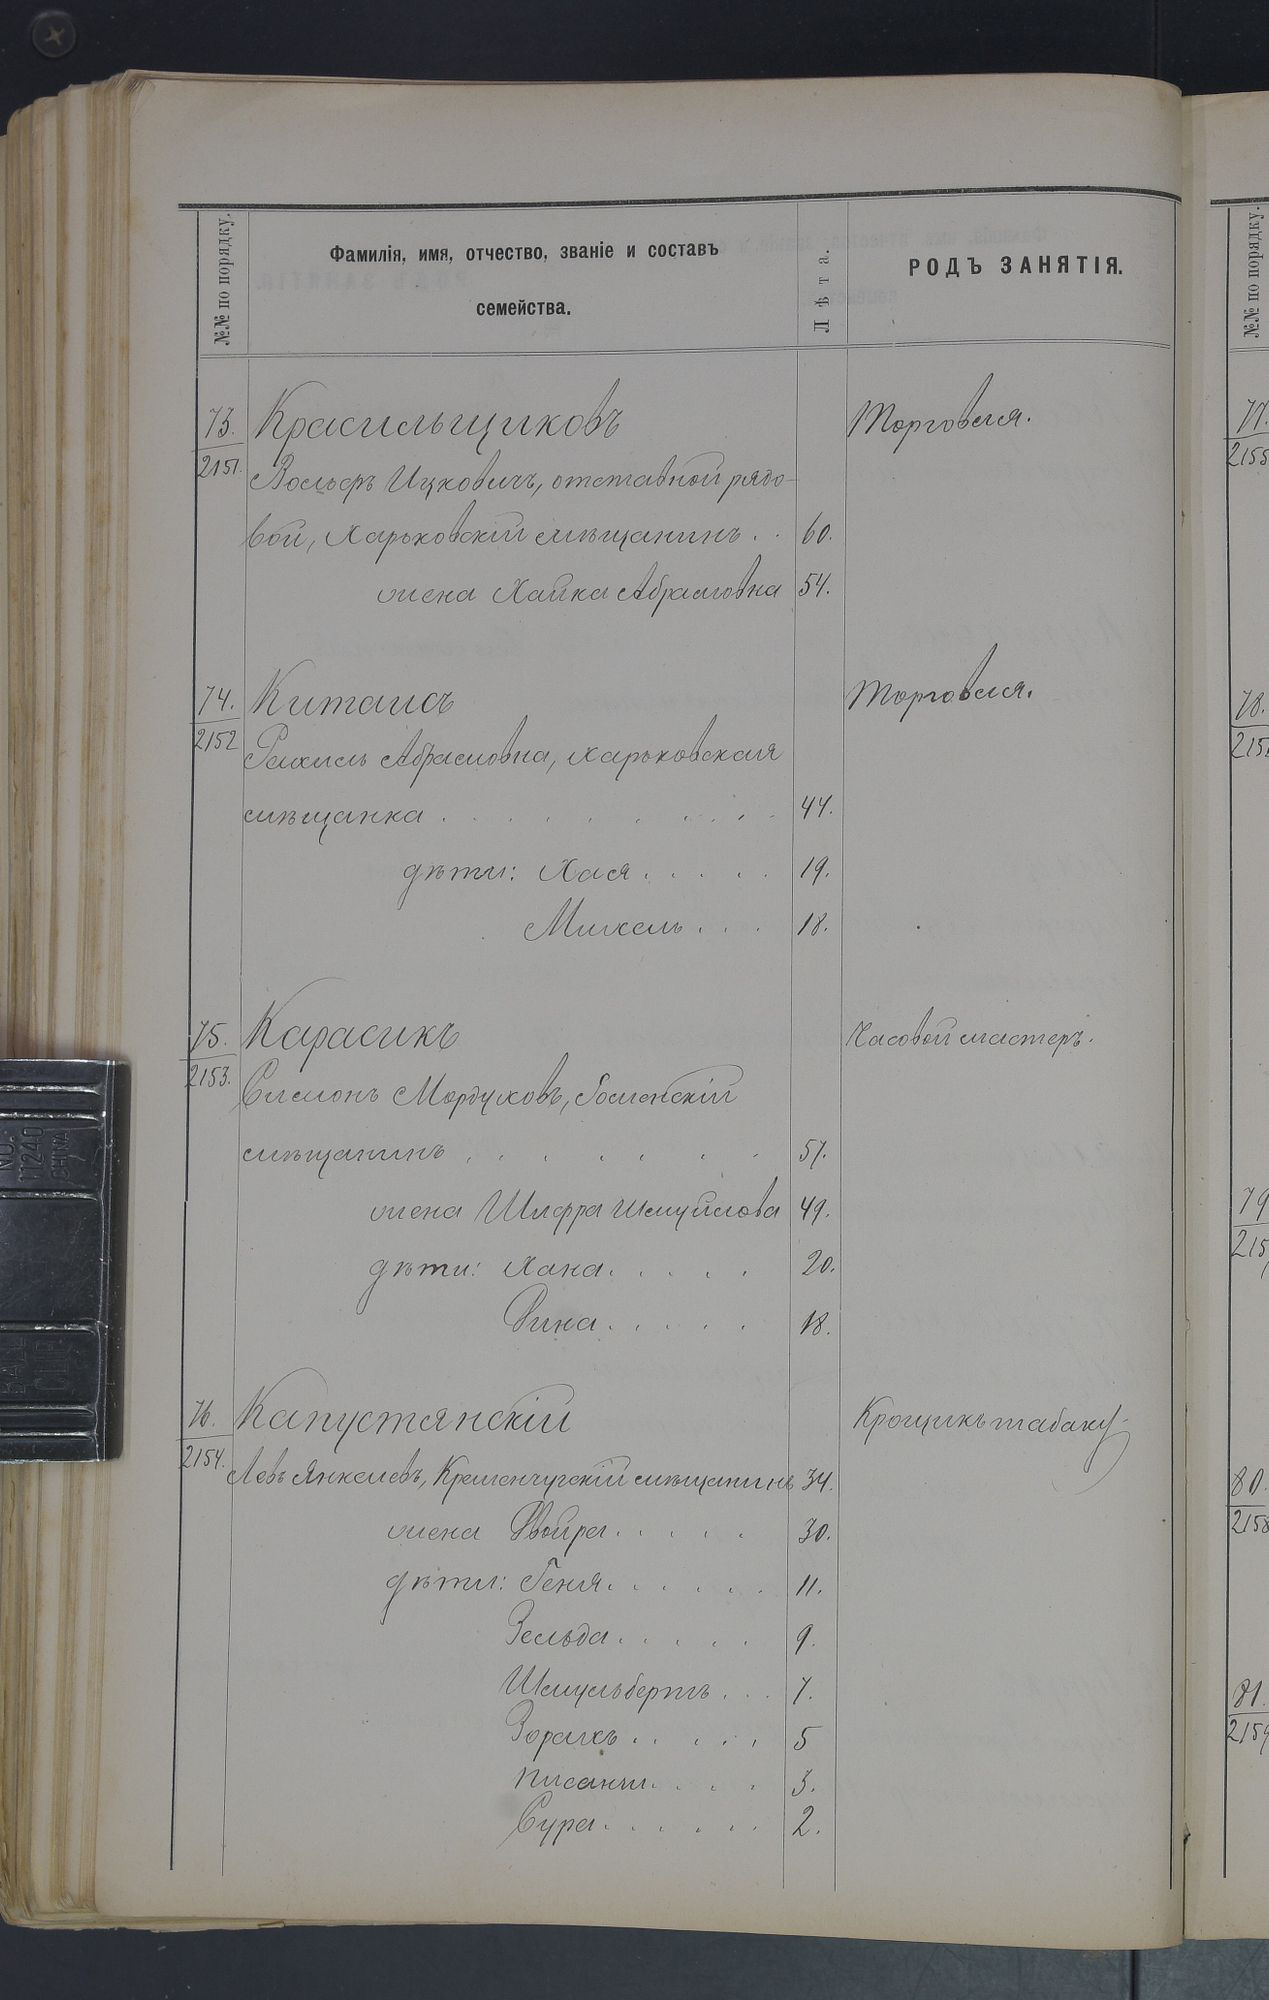 №№ по порядку.
Фамилія, имя, отчество, званіе и составъ
семейства.
Лѣта.
РОДЪ ЗАНЯТІЯ.
73. Красильщиковъ Торговля.
2151. Вольфъ Ицковичъ, отставной рядо-
вой, Харьковскій мѣщанинъ . . 60.
жена Хайка Абрамовна 54.
74. Китаисъ Торговля.
2152 Рахиль Абрамовна, харьковская
мѣщанка . . . . . . . . . . 44.
дѣти: Хася . . . . . 19.
Михель . . . 18.
75. Карасикъ Часовой мастеръ.
2153. Симонъ Мордуховъ,
мѣщанинъ . . . . . . . 57.
жена Шифра Шмуйлова 49.
дѣти: Хана . . . . . 20.
Дина . . . . . 18.
76. Капустянскій Крощикъ табаку
2154. Левъ Янкелевъ, Кременчугскій мѣщанинъ 34.
жена Двойра . . . . . 30.
дѣти: Геня . . . . . . 11.
Зельда . . . . . 9.
Шмульберъ . . . 7.
Зорахъ . . . . . 5
. . . . 3.
Сура . . . . . . 2.
№№ по порядку.
77.
2155
78.
215
79
215
80.
2158
81.
2159